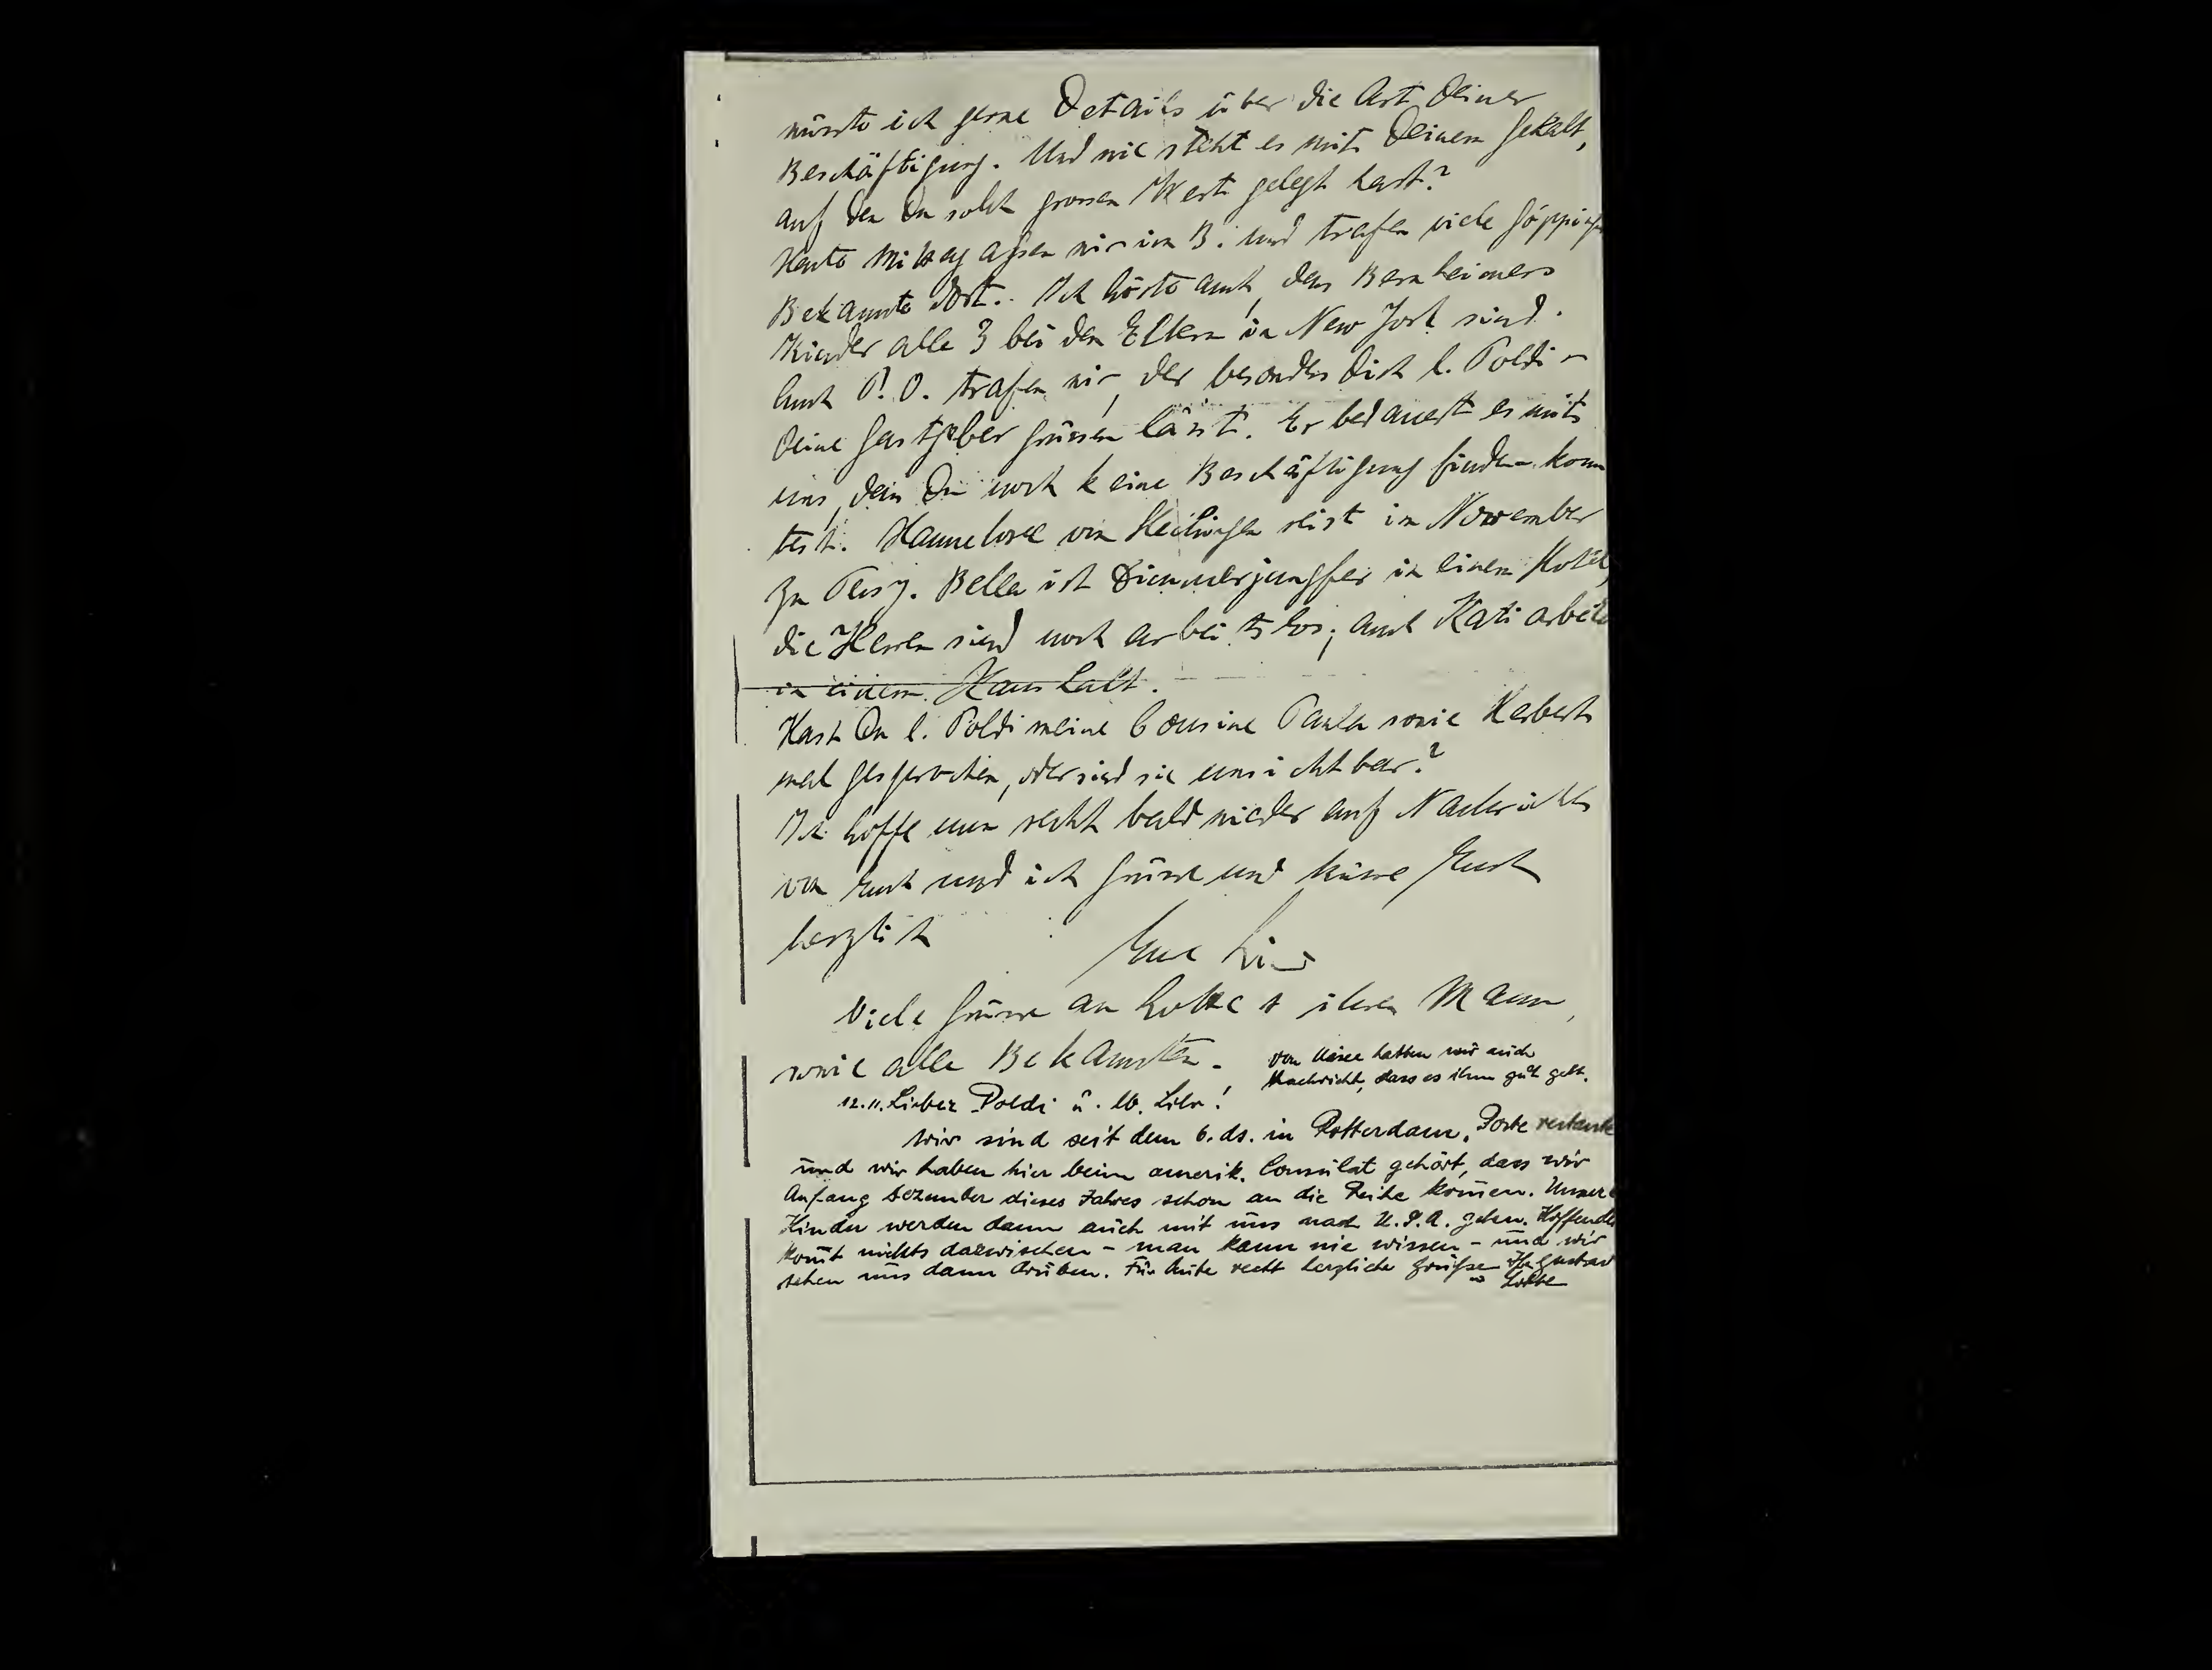 wüsste ich gerne Details über die Art Deiner
Beschäftigung. Und wie steht es mit Deinem Gehalt,
auf den Du solch grossen Wert gelegt hast?
Heute Mittag assen wir im B. und trafen viele Göppinger
Bekannte dort. Ich hörte auch, dass Bernheimers
Kinder alle 3 bei den Eltern in New York sind.
Auch P. O. trafen wir, der besonders Dich l. Poldi
Deine Gastgeber grüssen lässt. Er bedauert es mit
uns, dass Du noch keine Beschäftigung finden konn
test. Hannelore von reist im November
zu Bella ist Zimmerjungfer in einem Hotel,
die Herren sind noch arbeitslos; auch Kati arbeitet
in einem Haushalt.
Hast Du l. Poldi meine Cousine Paula sowie Herbert
mal gesprochen, oder sind sie unsichtbar?
Ich hoffe nun recht bald wieder auf Nachricht
von Euch und ich grüsse und küsse Euch
herzlich Eure
Viele Grüsse an Lotte & ihren Mann,
sowie alle Bekannten.
Von hatten wir auch
Nachricht, dass es ihm gut geht.
12.11. Lieber Poldi u. lb.
Wir sind seit dem 6. ds. in Rotterdam, Poste restante
und wir haben hier beim amerik. Consulat gehört, dass wir
Anfang Dezember dieses Jahres schon an die Reihe kommen. Unsere
Kinder werden dann auch mit uns nach U.S.A. gehen. Hoffentl
kommt nichts dazwischen - man kann nie wissen - und wir
sehen uns dann drüben. Für heute recht herzliche Grüsse Ihr Gustav
u Lotte